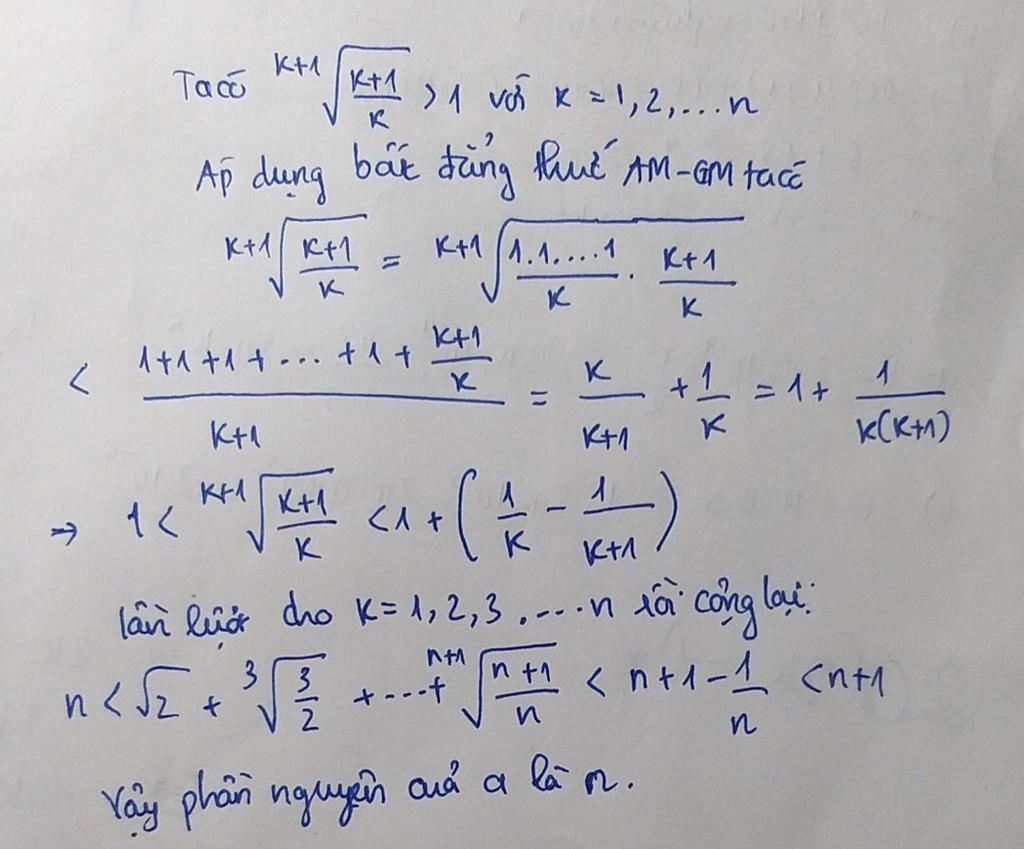 Ta có $\sqrt[k+1]{\frac{k+1}{k}} > 1$ với k = 1, 2, ... n
Áp dụng bất đẳng thức AM-GM ta có
$\sqrt[k+1]{\frac{k+1}{k}} = \sqrt[k+1]{\frac{1.1....1}{k} \cdot \frac{k+1}{k}}$
$< \frac{1+1+1+...+1+\frac{k+1}{k}}{k+1} = \frac{k}{k+1} + \frac{1}{k} = 1 + \frac{1}{k(k+1)}$
$\Rightarrow 1 < \sqrt[k+1]{\frac{k+1}{k}} < 1 + \left(\frac{1}{k} - \frac{1}{k+1}\right)$
lần lượt cho k = 1, 2, 3, .... n rồi cộng lại:
$n < \sqrt{2} + \sqrt[3]{\frac{3}{2}} + ... + \sqrt[n+1]{\frac{n+1}{n}} < n+1 - \frac{1}{n} < n+1$
Vậy phần nguyên của a là n.